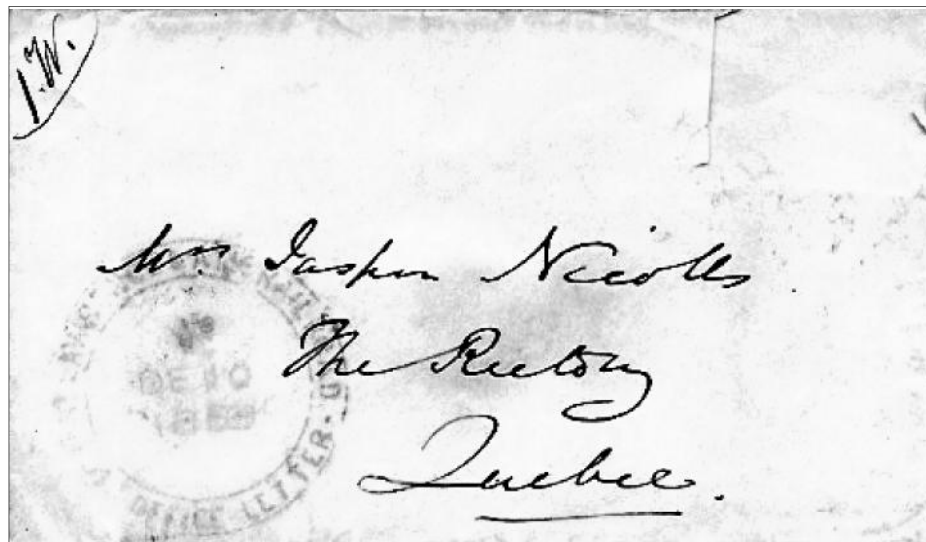 I.W.
Mrs Jasper Nicolls
The Rectory
Quebec.
OFFICE LETTER
DE 10